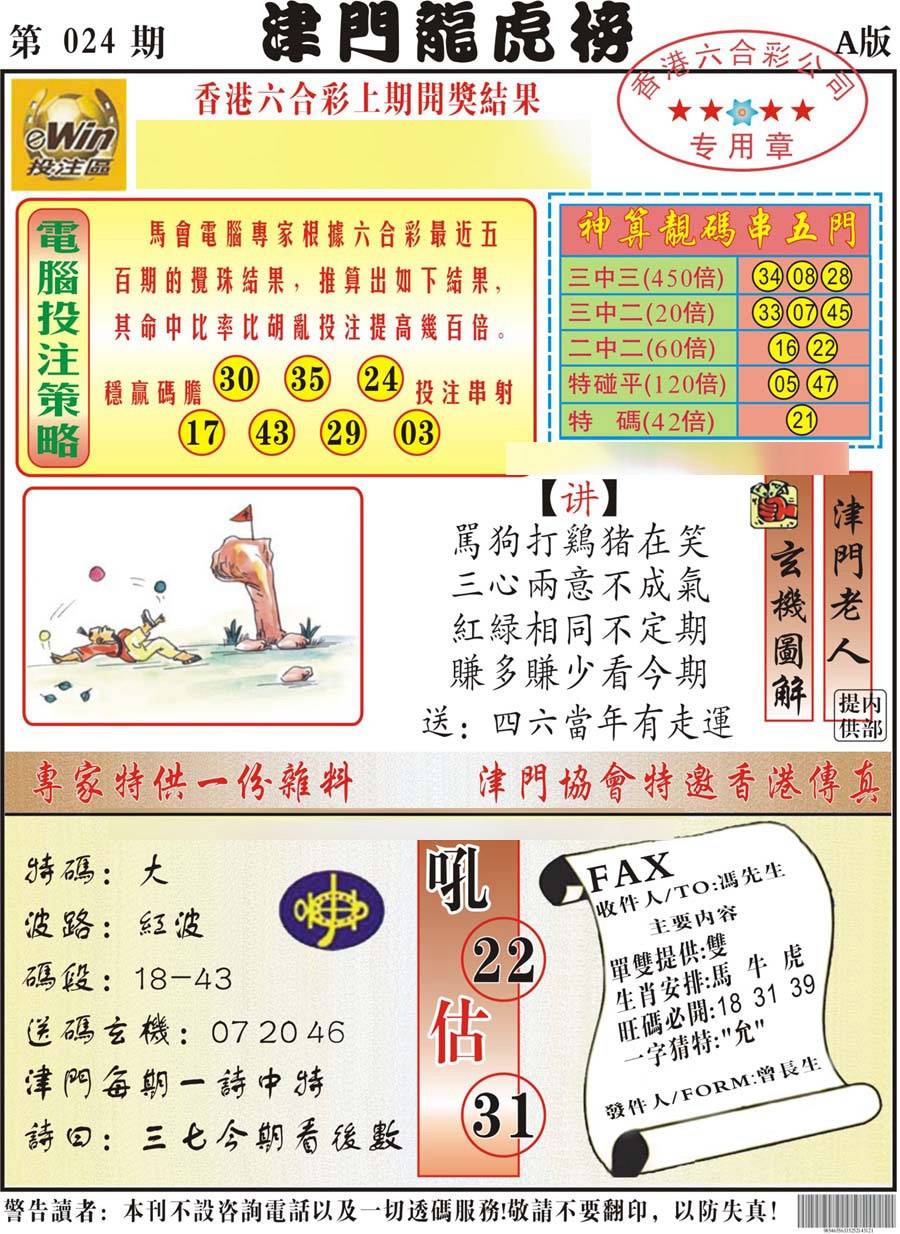 第 024 期
津門龍虎榜
A版
eWin
投注區
香港六合彩上期開獎結果
香港六合彩公司
专用章
電腦投注策略
馬會電腦專家根據六合彩最近五
百期的攪珠結果，推算出如下結果，
其命中比率比胡亂投注提高幾百倍。
穩贏碼膽 30 35 24 投注串射
17 43 29 03
神算靚碼串五門
三中三(450倍) 34 08 28
三中二(20倍) 33 07 45
二中二(60倍) 16 22
特碰平(120倍) 05 47
特 碼(42倍) 21
【讲】
駡狗打鷄猪在笑
三心兩意不成氣
紅緑相同不定期
賺多賺少看今期
送：四六當年有走運
玄機圖解
津門老人
内部提供
專家特供一份雜料
津門協會特邀香港傳真
特碼：大
波路：紅波
碼段：18-43
送碼玄機：07 20 46
津門每期一詩中特
詩曰：三七今期看後數
吼
22
估
31
FAX
收件人/TO:馮先生
主要内容
單雙提供:雙
生肖安排:馬 牛 虎
旺碼必開:18 31 39
一字猜特:"允"
發件人/FORM:曾長生
警告讀者：本刊不設咨詢電話以及一切透碼服務!敬請不要翻印，以防失真！